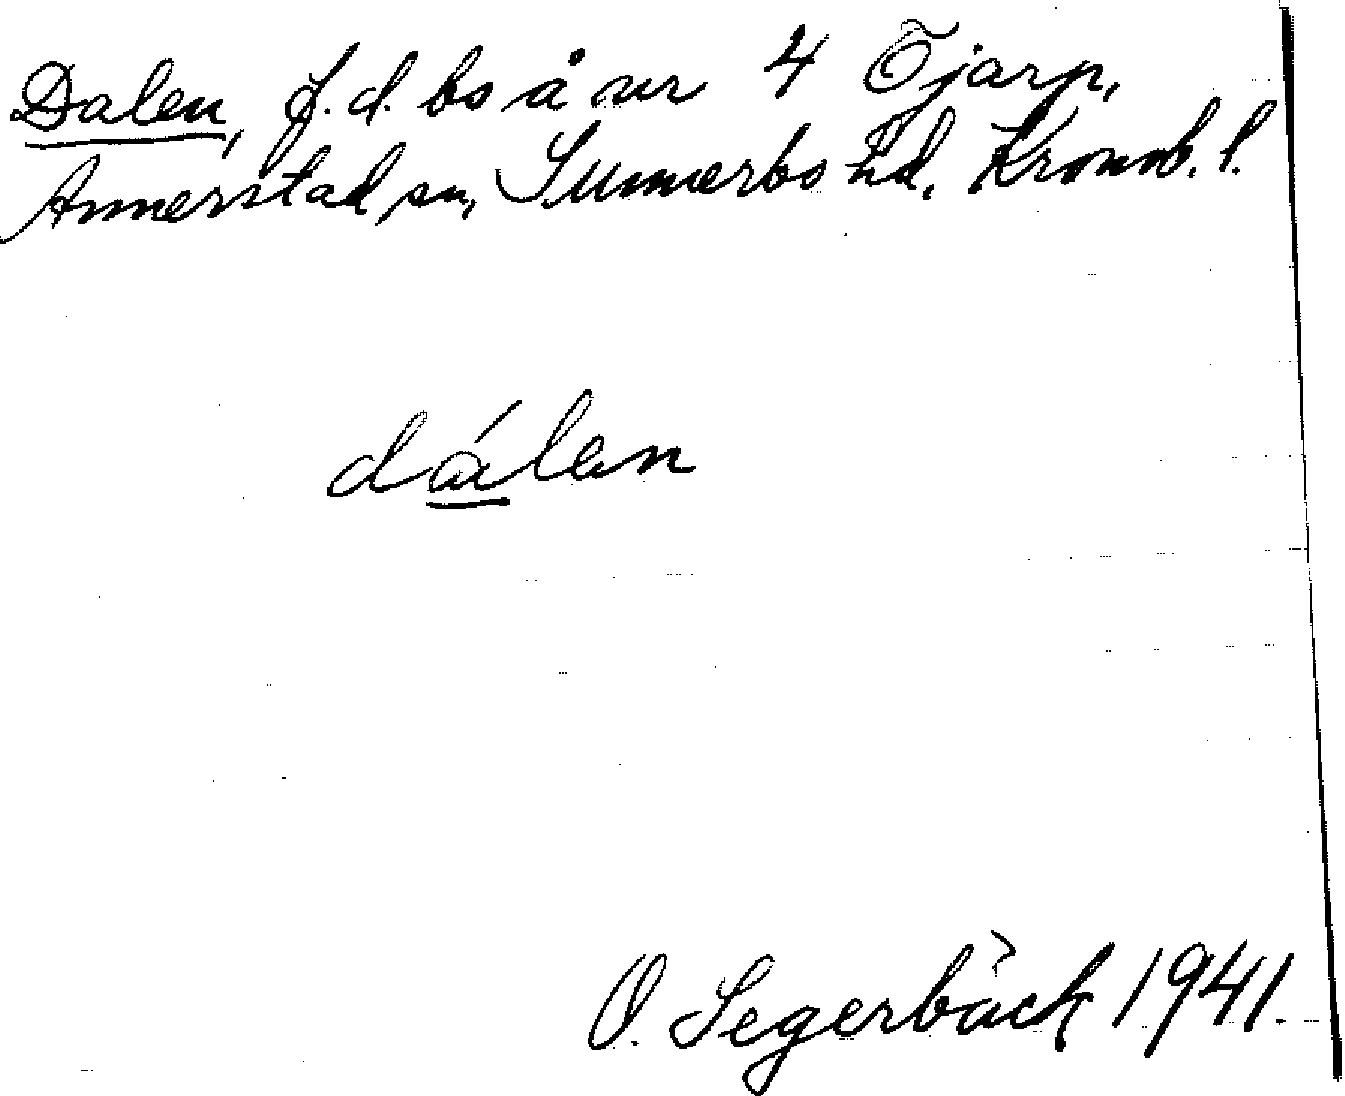 Dalen, f.d. bs å nr 4 Öjarp,
Annerstad sn, Sunnerbo hd, Kronob. l.
dálen
O. Segerbäck 1941.